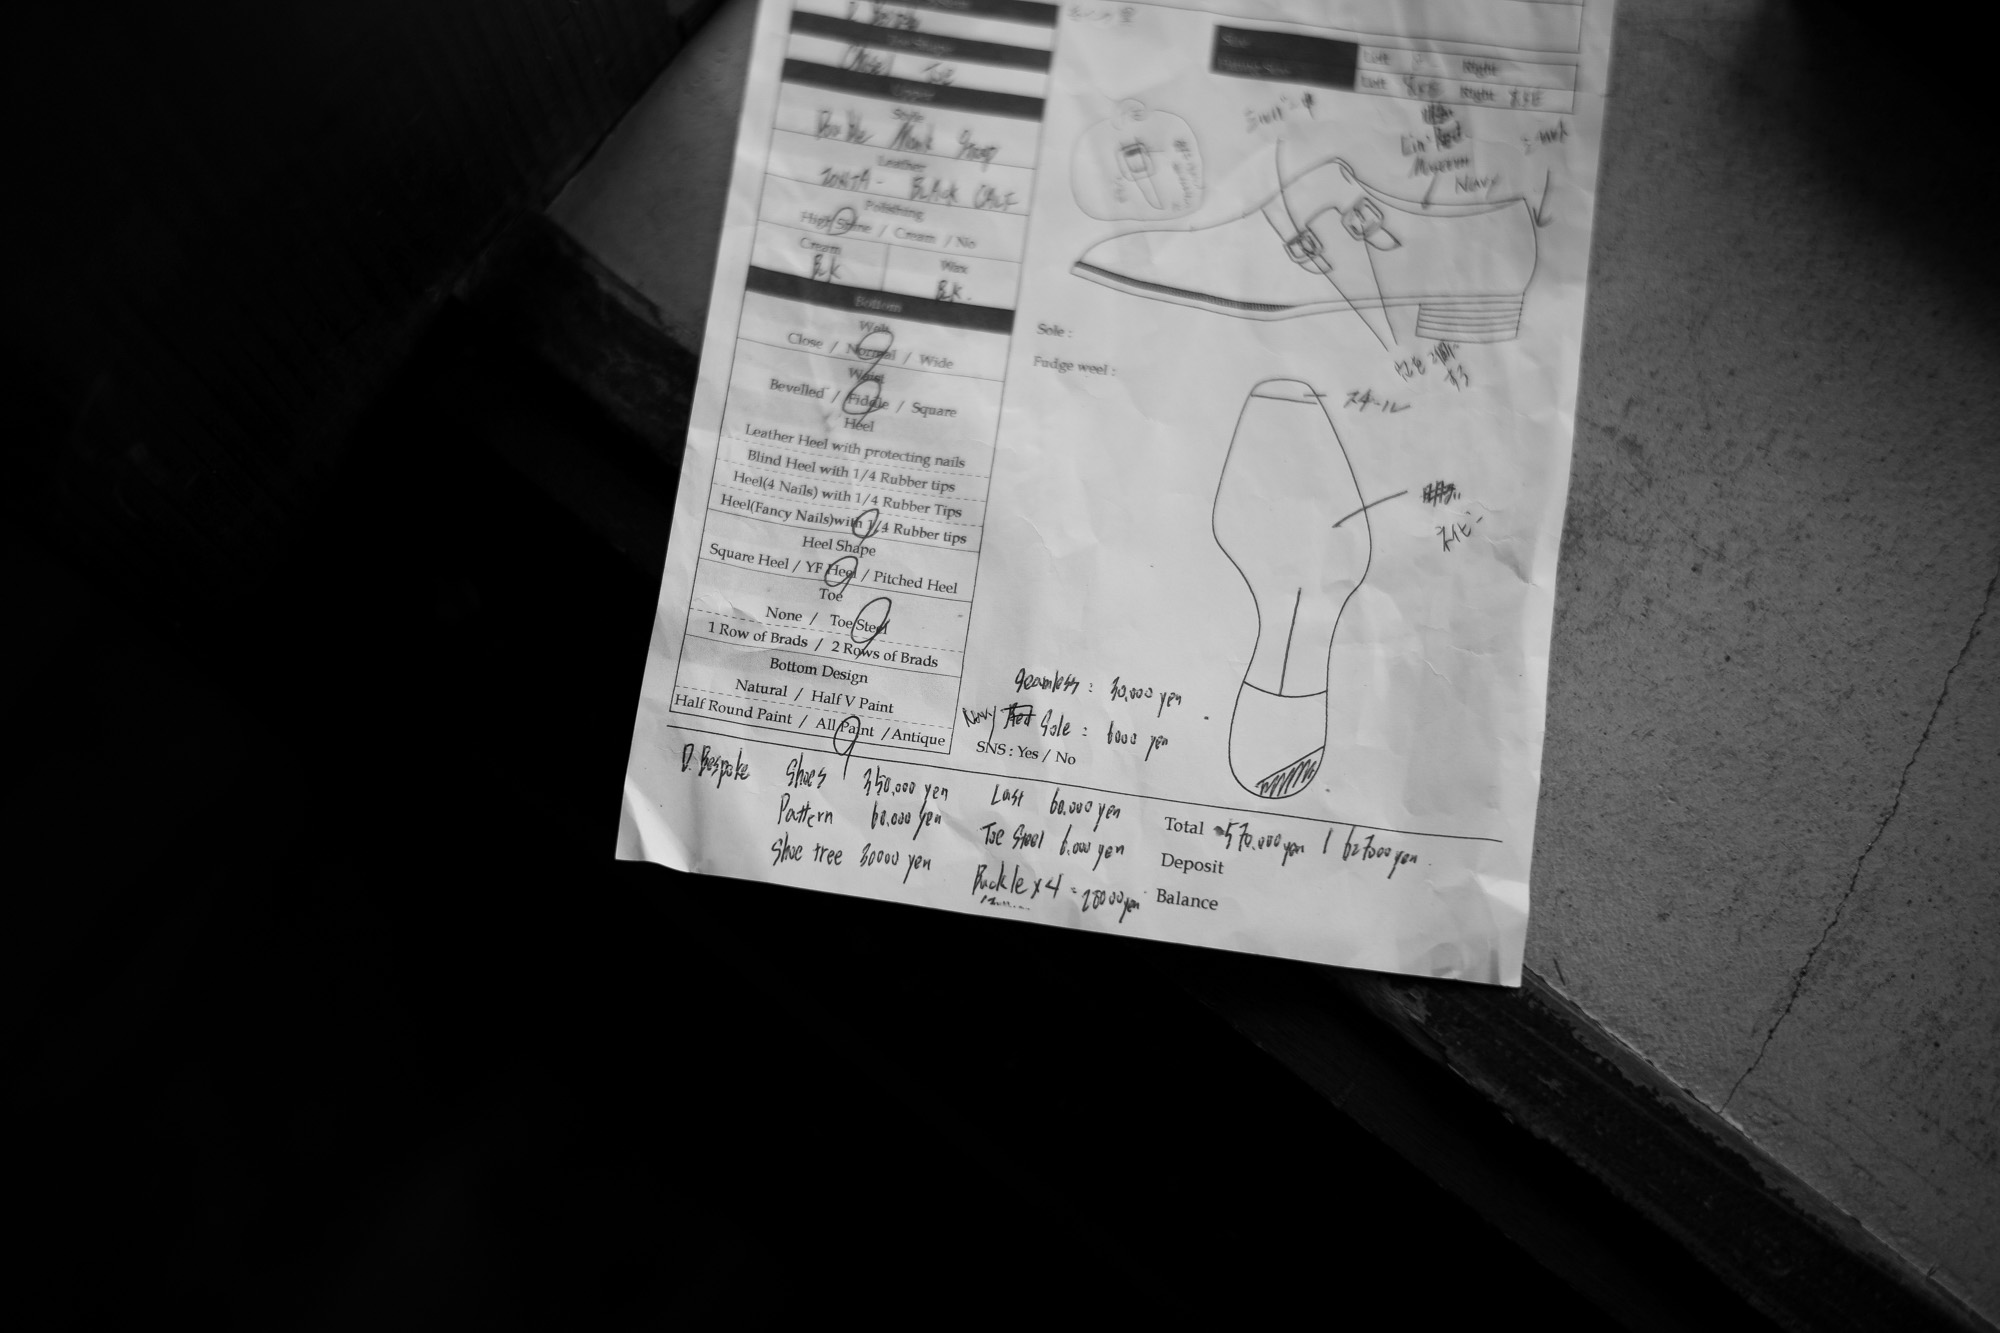 D. Bespoke
Toe Shape
Chisel Toe
Upper
Style
Double Monk Strap
Leather
ZONTA - BLACK CALF
Polishing
High Shine / Cream / No
Cream
BLK
Wax
BLK.
Bottom
Welt
Close / Normal / Wide
Waist
Bevelled / Fiddle / Square
Heel
Leather Heel with protecting nails
Blind Heel with 1/4 Rubber tips
Heel(4 Nails) with 1/4 Rubber Tips
Heel(Fancy Nails)with 1/4 Rubber tips
Heel Shape
Square Heel / YF Heel / Pitched Heel
Toe
None / Toe Steel
1 Row of Brads / 2 Rows of Brads
Bottom Design
Natural / Half V Paint
Half Round Paint / All Paint / Antique
Left Right
Left Right
Navy
Sole :
Fudge weel :
スチール
ネイビー
Seamless : 30,000 yen
Navy Red Sole : 6000 yen
SNS : Yes / No
D. Bespoke Shoes 350,000 yen Last 60,000 yen
Pattern 60,000 yen Toe Steel 6,000 yen
Shoe tree 30000 yen Buckle x 4 = 28000yen
Total 570,000yen / 627000yen.
Deposit
Balance